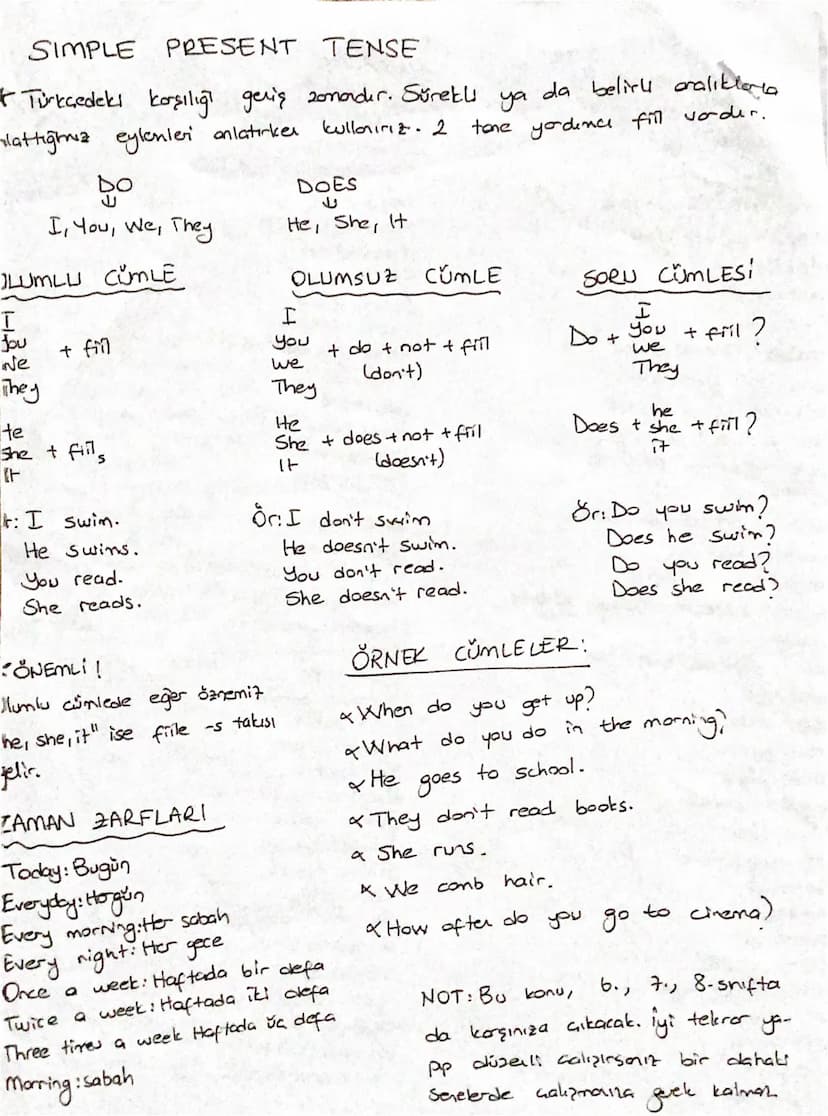 SIMPLE PRESENT TENSE
Türkçedeki karşılığı geniş zamandır. Sürekli ya da belirli aralıklarla
eylemleri anlatırken kullanırız. 2 tane yardımcı fiil vardır.
DO
I, You, We, They
DOES
He, She, It
OLUMLU CÜMLE
I
You
We + fiil
They
He
She + fiil s
It
Ör: I swim.
He swims.
You read.
She reads.
OLUMSUZ CÜMLE
I
You + do + not + fiil
We (don't)
They
He
She + does + not + fiil
It (doesn't)
Ör: I don't swim
He doesn't swim.
You don't read.
She doesn't read.
SORU CÜMLESİ
I
Do + you + fiil ?
we
They
he
Does + she + fiil ?
it
Ör: Do you swim?
Does he swim?
Do you read?
Does she read?
ÖNEMLİ !
Olumlu cümlede eğer öznemiz
he, she, it" ise fiile -s takısı
gelir.
ZAMAN ZARFLARI
Today: Bugün
Everyday: Her gün
Every morning: Her sabah
Every night: Her gece
Once a week: Haftada bir defa
Twice a week: Haftada iki defa
Three times a week Haftada üç defa
Morning: sabah
ÖRNEK CÜMLELER:
When do you get up?
What do you do in the morning?
He goes to school.
They don't read books.
She runs.
We comb hair.
How often do you go to cinema?
NOT: Bu konu, 6., 7., 8. sınıfta
da karşınıza çıkacak. İyi tekrar ya-
pıp düzenli çalışırsanız bir dahaki
senelerde çalışmanıza gerek kalmaz